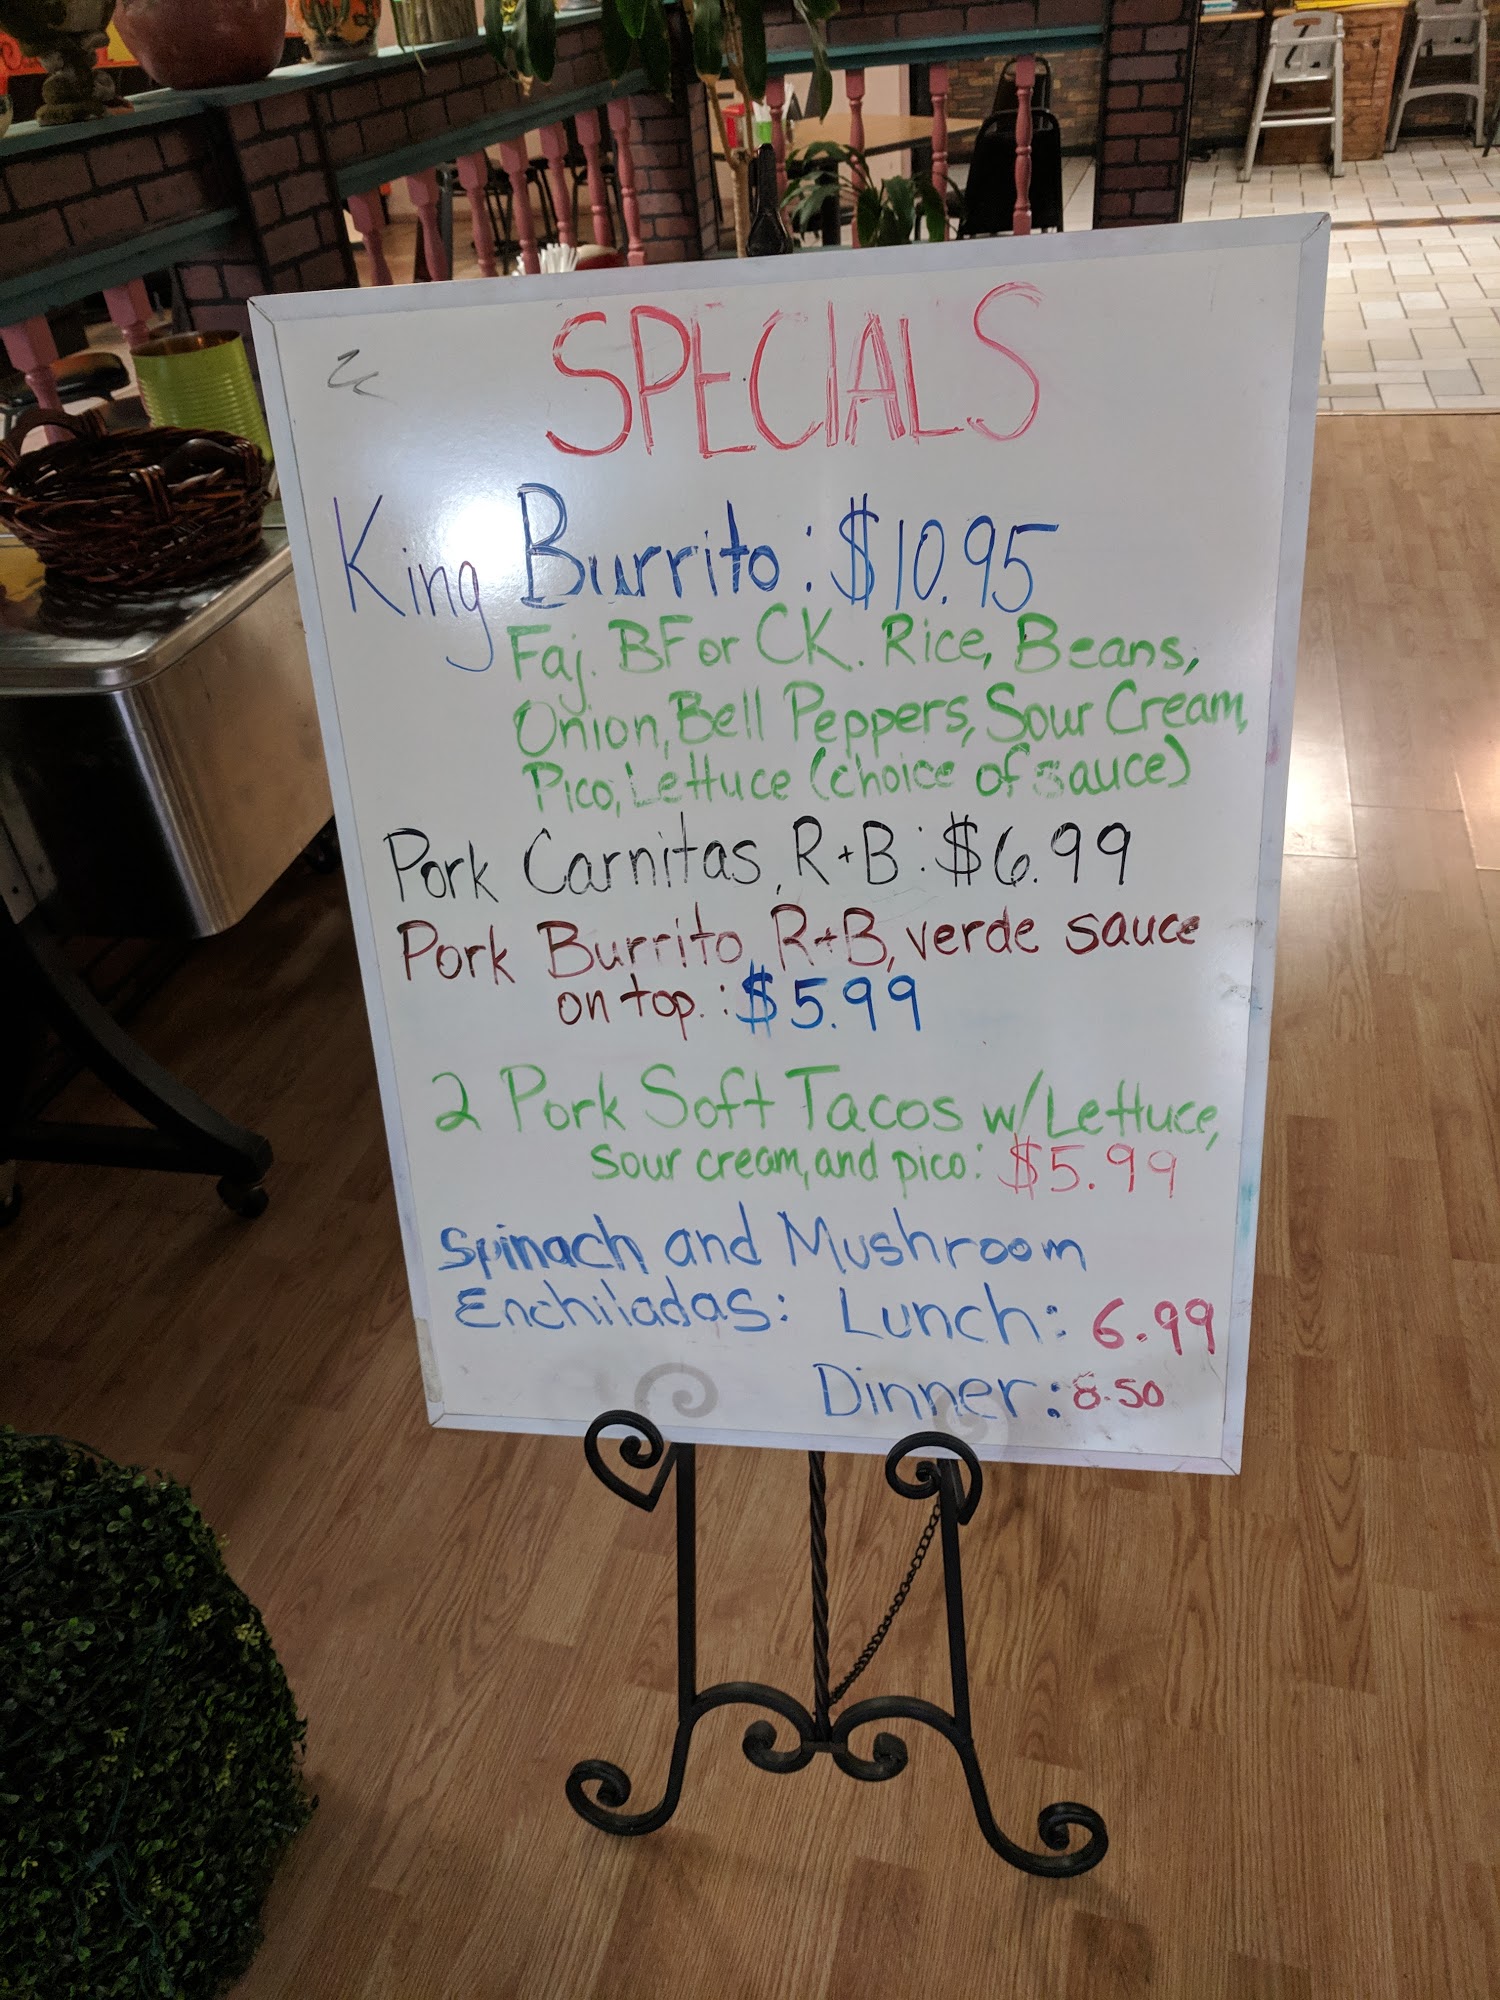 SPECIALS
King Burrito: $10.95
Faj. BF or CK. Rice, Beans,
Onion, Bell Peppers, Sour Cream,
Pico, Lettuce (choice of sauce)
Pork Carnitas, R+B: $6.99
Pork Burrito, R+B, verde sauce
on top.: $5.99
2 Pork Soft Tacos w/Lettuce,
sour cream, and pico: $5.99
Spinach and Mushroom
Enchiladas: Lunch: 6.99
Dinner: 8.50